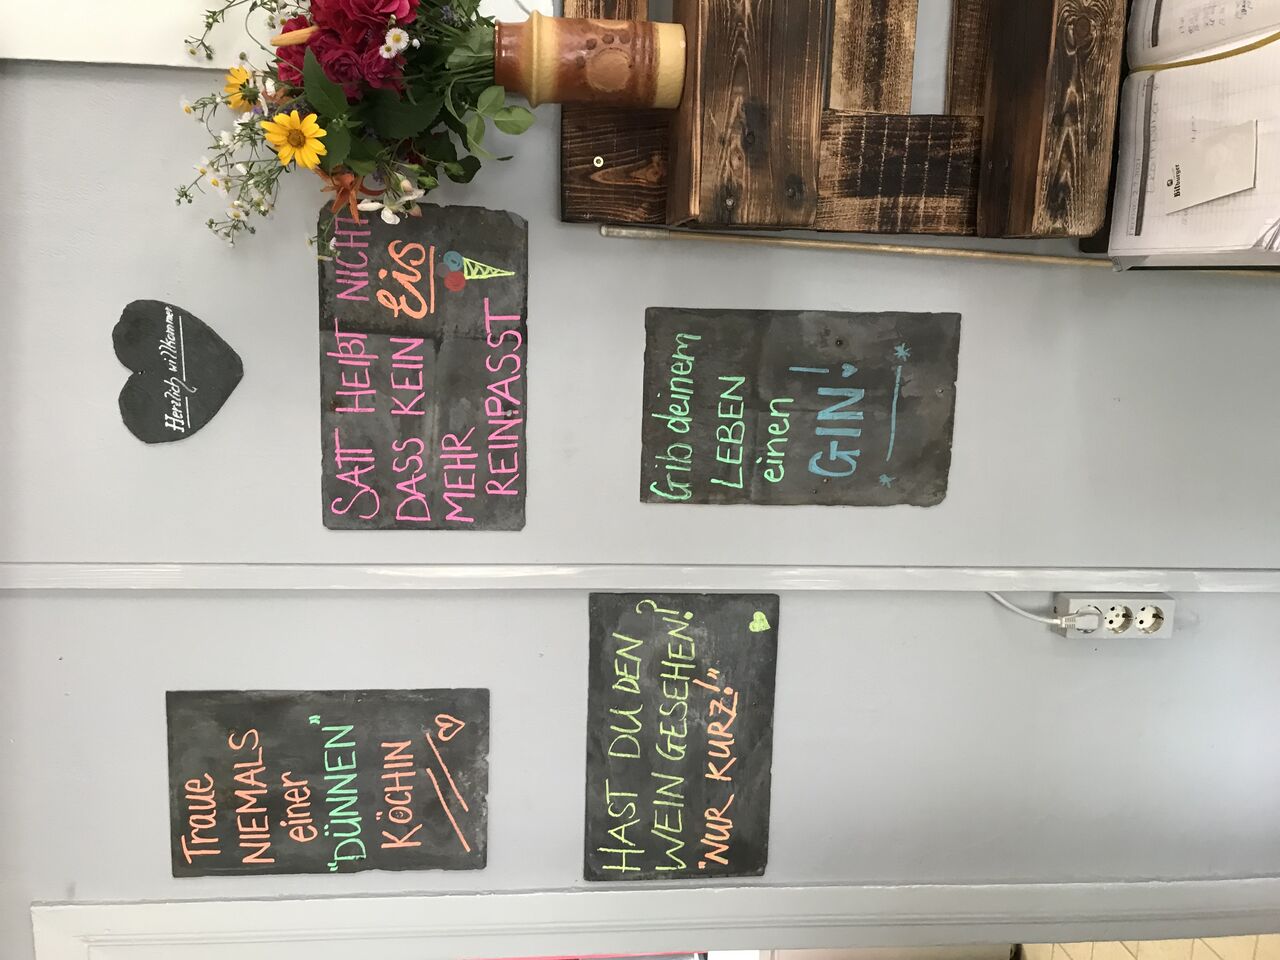 Herzlich willkommen
SATT HEIßT NICHT
DASS KEIN Eis
MEHR
REINPASST
Gib deinem
LEBEN
einen
GIN!
Traue
NIEMALS
einer
"DÜNNEN"
KÖCHIN
HAST DU DEN
WEIN GESEHEN?
"NUR KURZ!"
Bitburger